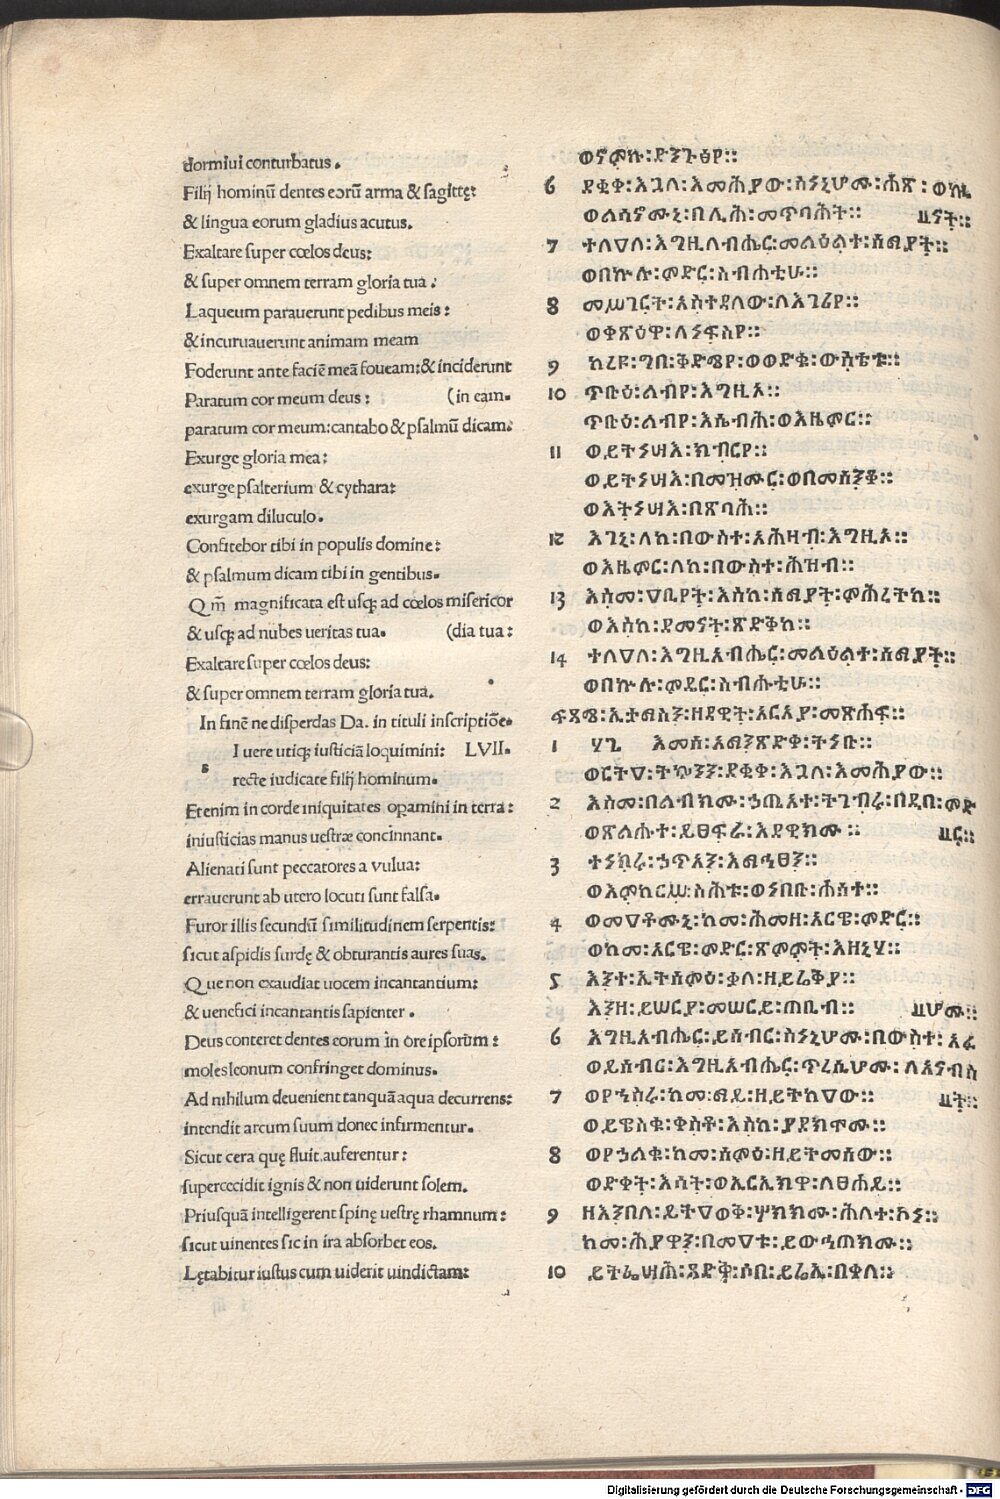 dormiui conturbatus.
Filij hominū dentes eorū arma & sagittę:
& lingua eorum gladius acutus.
Exaltare super cœlos deus:
& super omnem terram gloria tua:
Laqueum parauerunt pedibus meis:
& incuruauerunt animam meam
Foderunt ante faciē meā foueam:& inciderunt
Paratum cor meum deus: (in eam.
paratum cor meum:cantabo & psalmū dicam.
Exurge gloria mea:
exurge psalterium & cythara:
exurgam diluculo.
Confitebor tibi in populis domine:
& psalmum dicam tibi in gentibus.
Qm̄ magnificata est usq; ad cœlos misericor
& usq; ad nubes ueritas tua. (dia tua:
Exaltare super cœlos deus:
& super omnem terram gloria tua.
In finē ne disperdas Da. in tituli inscriptiōe.
s I uere utiq; iusticiā loquimini: LVII.
recte iudicate filij hominum.
Etenim in corde iniquitates opamini in terra:
iniusticias manus uestræ concinnant.
Alienati sunt peccatores a vulua:
errauerunt ab utero locuti sunt falsa.
Furor illis secundū similitudinem serpentis:
sicut aspidis surdę & obturantis aures suas.
Que non exaudiat uocem incantantium:
& uenefici incantantis sapienter.
Deus conteret dentes eorum in ore ipsorum:
moles leonum confringet dominus.
Ad nihilum deuenient tanquā aqua decurrens:
intendit arcum suum donec infirmentur.
Sicut cera quę fluit auferentur:
supercecidit ignis & non uiderunt solem.
Priusquā intelligerent spinę uestrę rhamnum:
sicut uiuentes sic in ira absorbet eos.
Lętabitur iustus cum uiderit uindictam:
ወኖምኩ፡ድንጉፅየ፡፡
6 ደቂቀ፡እጓለ፡እመሕያው፡ስኒሆሙ፡ሕጽ፡ወኲ
ወልሳኖሙኒ፡በሊሕ፡መጥባሕት፡፡ ናት፡፡
7 ተለዓለ፡እግዚአብሔር፡መልዕልተ፡ሰማያት፡፡
ወበኵሉ፡ምድር፡ስብሐቲሁ፡፡
8 መሥገርት፡አስተደለው፡ለእገሪየ፡፡
ወቀጽዕዋ፡ለነፍስየ፡፡
9 ከረዩ፡ግበ፡ቅድሜየ፡ወወድቁ፡ውስቴቱ፡፡
10 ጥቡዕ፡ልብየ፡እግዚኦ፡፡
ጥቡዕ፡ልብየ፡እሴብሕ፡ወእዜምር፡፡
11 ወይትነሣእ፡ክብርየ፡፡
ወይትነሣእ፡በመዝሙር፡ወበመሰንቆ፡፡
ወእትነሣእ፡በጽባሕ፡፡
12 እገኒ፡ለከ፡በውስተ፡አሕዛብ፡እግዚኦ፡፡
ወእዜምር፡ለከ፡በውስተ፡ሕዝብ፡፡
13 እስመ፡ዓቢየት፡እስከ፡ሰማያት፡ምሕረትከ፡፡
ወእስከ፡ደመናት፡ጽድቅከ፡፡
14 ተለዓለ፡እግዚአብሔር፡መልዕልተ፡ሰማያት፡፡
ወበኵሉ፡ምድር፡ስብሐቲሁ፡፡
ፍጻሜ፡ኢታማስን፡ዘዳዊት፡አርአያ፡መጽሐፍ፡፡
1 ፶፯ እመሰ፡አማንጽድቀ፡ትነቡ፡፡
ወርትዓ፡ትኴንን፡ደቂቀ፡እጓለ፡እመሕያው፡፡
2 እስመ፡በልብክሙ፡ኃጢአተ፡ትገብሩ፡በዲበ፡ምድ
ወጽልሑተ፡ይፀፍራ፡እደዊክሙ፡፡ ር፡፡
3 ተነኪሩ፡ኃጥአን፡እማኅፀን፡፡
ወእምከርሥ፡ስሕቱ፡ወነበቡ፡ሐሰተ፡፡
4 ወመዓቶሙኒ፡ከመ፡ሕምዘ፡አርዌ፡ምድር፡፡
ወከመ፡አርዌ፡ምድር፡ጽምምት፡እዘኒሃ፡፡
5 እንተ፡ኢትሰምዕ፡ቃለ፡ዘይሬቅያ፡፡
እንዘ፡ይሠርያ፡መሠርይ፡ጠቢብ፡፡ ሆሙ፡፡
6 እግዚአብሔር፡ይሰብር፡ስነኒሆሙ፡በውስተ፡አፉ
ወይሰብር፡እግዚአብሔር፡ጥረሲሆሙ፡ለአናብስ
7 ወየኀስሩ፡ከመ፡ማይ፡ዘይትከዓው፡፡ ት፡፡
ወይዌስቁ፡ቀስቶ፡እስከ፡ያደክሞሙ፡፡
8 ወየኃልቁ፡ከመ፡ሰምዕ፡ዘይትመሰው፡፡
ወድቀት፡እሳት፡ወኢርኢክዋ፡ለፀሐይ፡፡
9 ዘእንበለ፡ይትዓወቅ፡ሦክክሙ፡ሕለተ፡ኮነ፡፡
ከመ፡ሕያዋን፡በመዓቱ፡ይውኅጠክሙ፡፡
10 ይትፌሣሕ፡ጻድቅ፡ሶበ፡ይሬኢ፡በቀለ፡፡
Digitalisierung gefördert durch die Deutsche Forschungsgemeinschaft - DFG